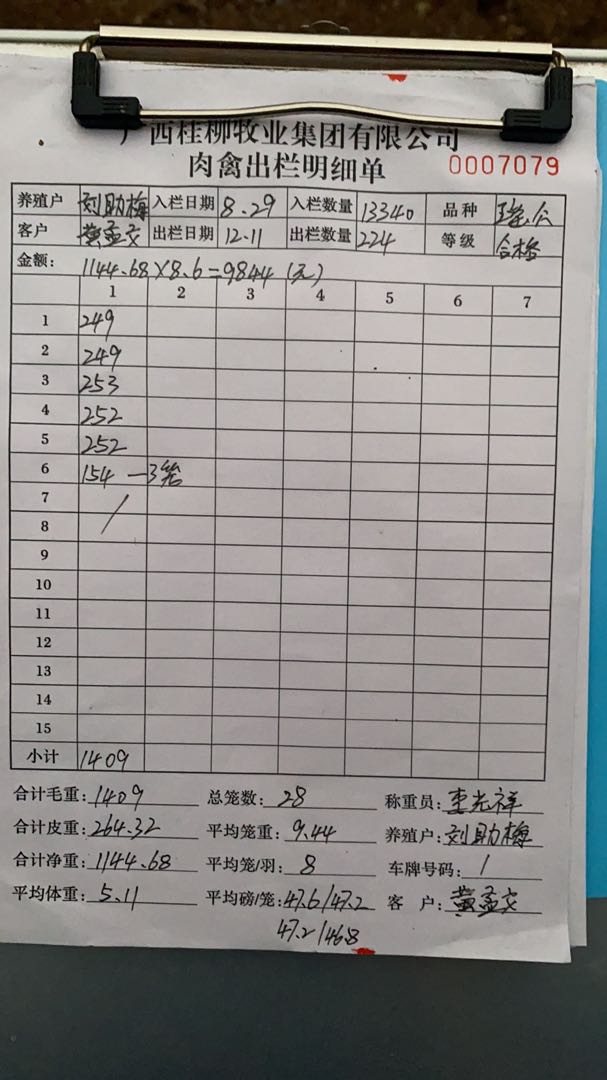 广西桂柳牧业集团有限公司
肉禽出栏明细单 0007079
养殖户 刘助梅 入栏日期 8.29 入栏数量 13340 品种 瑤公
客户 黄孟交 出栏日期 12.11 出栏数量 224 等级 合格
金额: 1144.68×8.6=9844(元)
1 2 3 4 5 6 7
1 249
2 249
3 253
4 252
5 252
6 154 —3笼
7 /
8
9
10
11
12
13
14
15
小计 1409
合计毛重: 1409 总笼数: 28 称重员: 李光祥
合计皮重: 264.32 平均笼重: 9.44 养殖户: 刘助梅
合计净重: 1144.68 平均笼/羽: 8 车牌号码: /
平均体重: 5.11 平均磅/笼: 47.6/47.2 客 户: 黄孟交
47.2/46.8